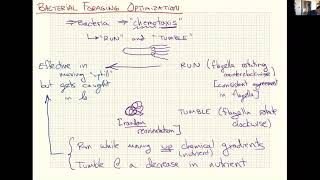 BACTERIAL FORAGING OPTIMIZATION
⇒ Bacteria ⇒ "chemotaxis"
↳ "RUN" and "TUMBLE"
Effective in
moving "uphill"
but gets caught
in
RUN (flagella rotating
counterclockwise)
[consistent agreement
in flagella]
TUMBLE (flagella rotate
clockwise)
[random
reorientation]
Run while moving up chemical gradients
(nutrient)
Tumble @ a decrease in nutrient